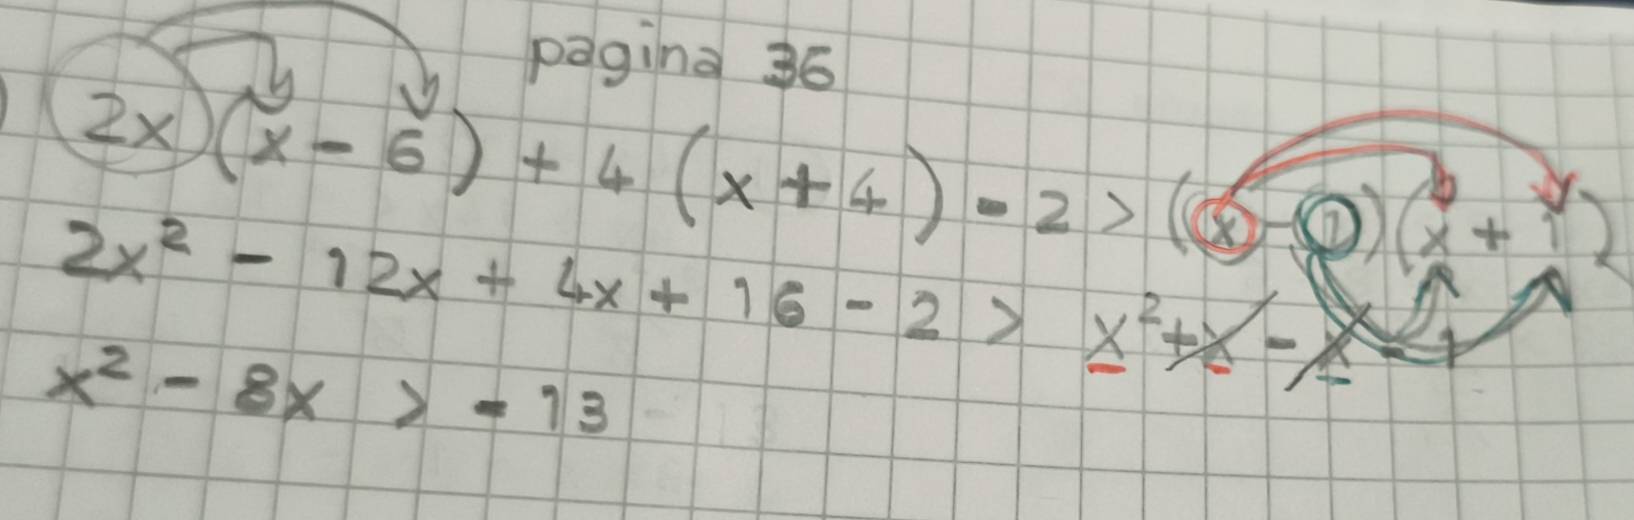 pagina 36
2x (x - 6) + 4 (x + 4) - 2 > (x - 1) (x + 1)
2x² - 12x + 4x + 16 - 2 > x² + x - x - 1
x² - 8x > - 13